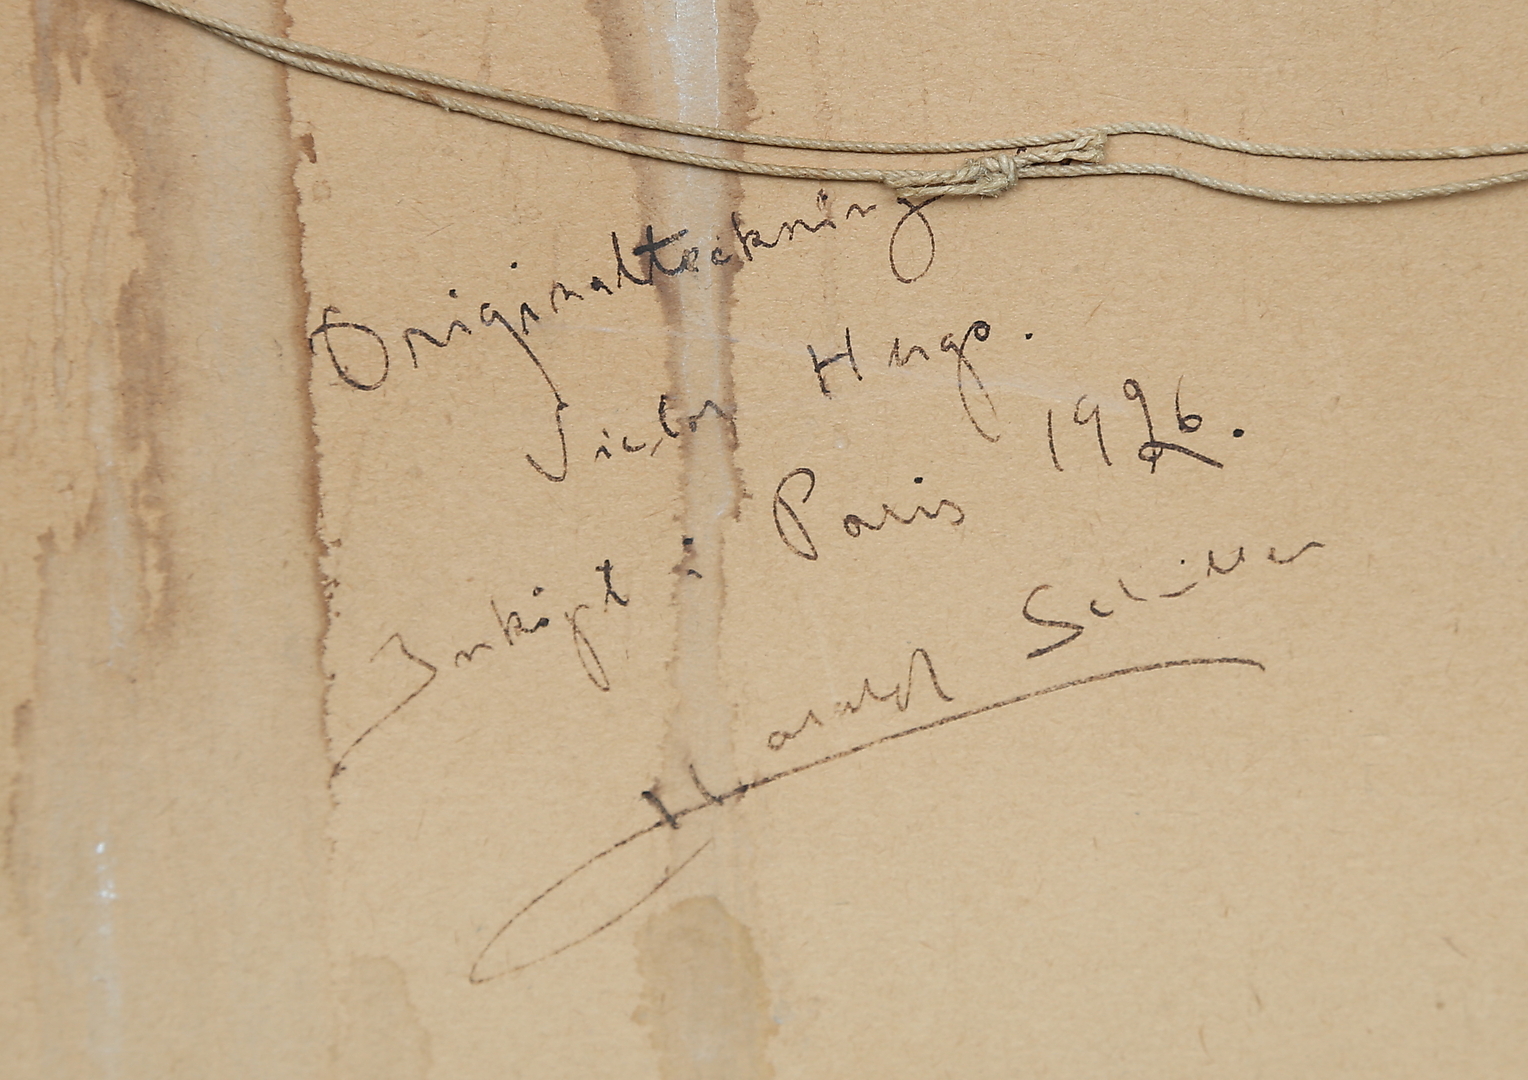 Originalteckning
Victor Hugo.
Inköpt i Paris 1926.
Harald Schiller